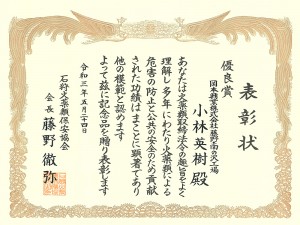 表彰状
優良賞
小林英樹殿
あなたは火薬類取締法令の趣旨をよく
理解し多年にわたり火薬類による
危害の防止と公共の安全のため貢献
された功績はまことに顕著であり
他の模範と認めます
よって茲に記念品を贈り表彰します
令和三年五月二十四日
石狩火薬類保安協会
会長 藤野徹弥